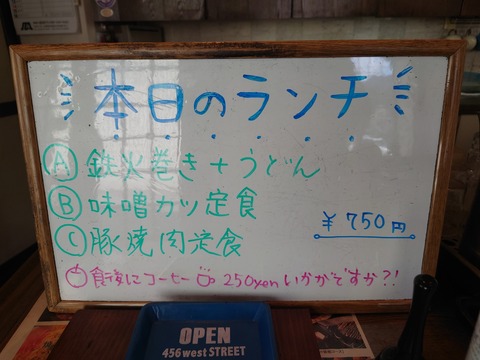 本日のランチ
Ⓐ 鉄火巻き+うどん
Ⓑ 味噌カツ定食
Ⓒ 豚焼肉定食
¥750円
食後にコーヒー 250yen いかがですか?!
OPEN
456 west STREET